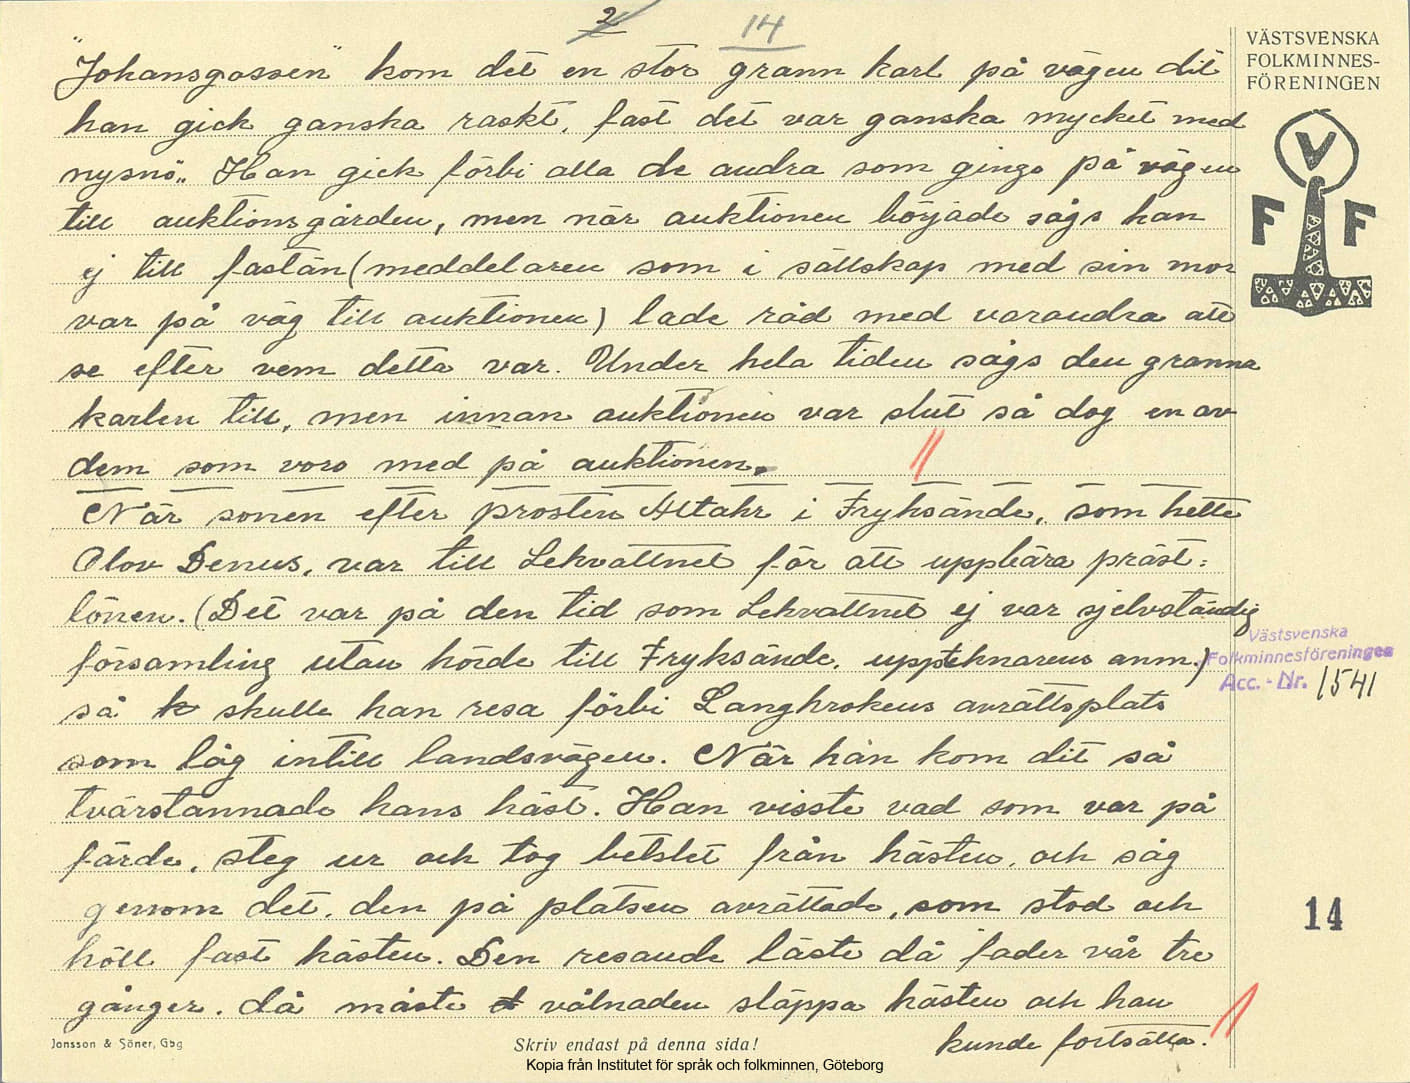 2
14
"Johansgossen" kom det en stor grann karl på vägen dit
han gick ganska raskt, fast det var ganska mycket med
nysnö.. Han gick förbi alla de andra som gingo på vägen
till auktionsgården, men när auktionen började sågs han
ej till fastän (meddelaren som i sällskap med sin mor
var på väg till auktionen) lade råd med varandra att
se efter vem detta var. Under hela tiden sågs den granna
karlen till, men innan auktionen var slut så dog en av
dem som voro med på auktionen.
När sonen efter prosten Altahr i Fryksände, som hette
Olov Denus, var till Lekvattnet för att uppbära präst=
lönen. (Det var på den tid som Lekvattnet ej var sjelvständig
församling utan hörde till Fryksände, uppteknarens anm.)
så skulle han resa förbi Langbrokens avrättsplats
som låg intill landsvägen. När han kom dit så
tvärstannade hans häst. Han visste vad som var på
färde, steg ur och tog betslet från hästen, och såg
genom det, den på platsen avrättade, som stod och
höll fast hästen. Den resande läste då fader vår tre
gånger. då måste vålnaden släppa hästen och han
kunde fortsätta.
VÄSTSVENSKA
FOLKMINNES-
FÖRENINGEN
V
F F
Västsvenska
Folkminnesföreningen
Acc.-Nr. 1541
14
Jonsson & Söner, Gbg
Skriv endast på denna sida!
Kopia från Institutet för språk och folkminnen, Göteborg